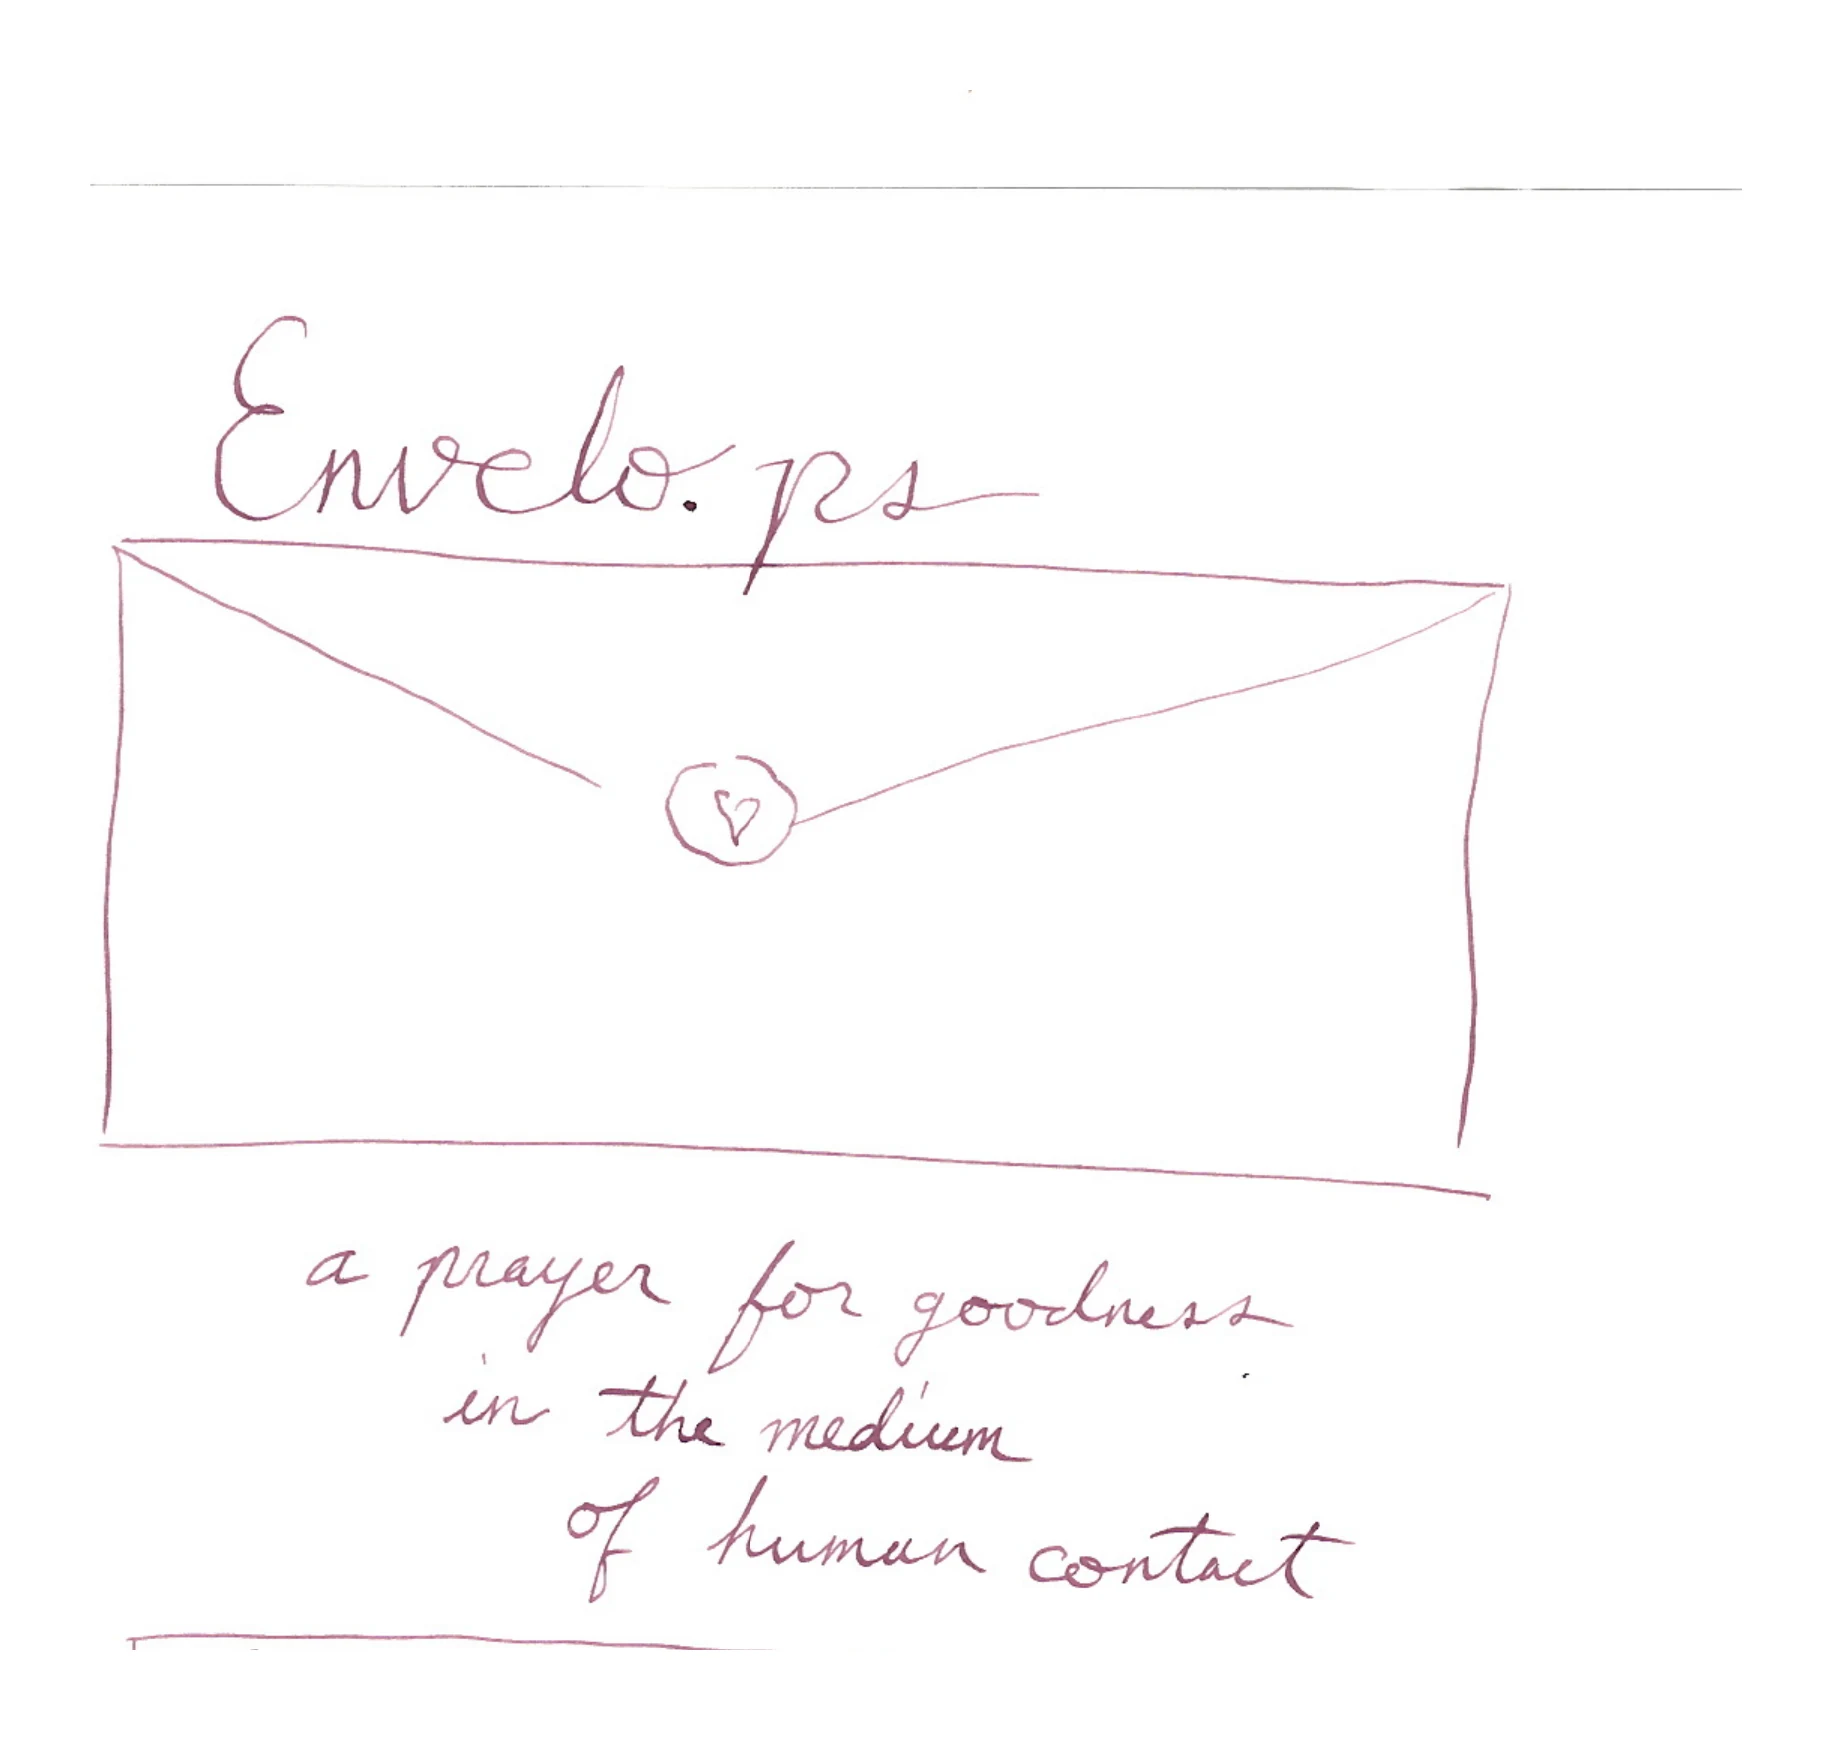 Envelo.ps
a prayer for goodness
in the medium
of human contact